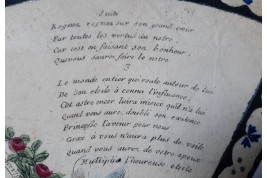 Suite
Régnez, régnez sur son grand cœur
Par toutes les vertus du notre
Car c'est en faisant son bonheur
Que vous saurez faire le notre
3
Le monde entier qui roule autour de lui
De son étoile à connu l'influence;
Cet astre mort luira mieux qu'il n'a lui
Quand vous aurez, doublé son existence
Principe l'avenir pour nous
Grace à vous n'aura plus de voile
Quand vous aurez de notre époux
Multiplié l'heureuse étoile